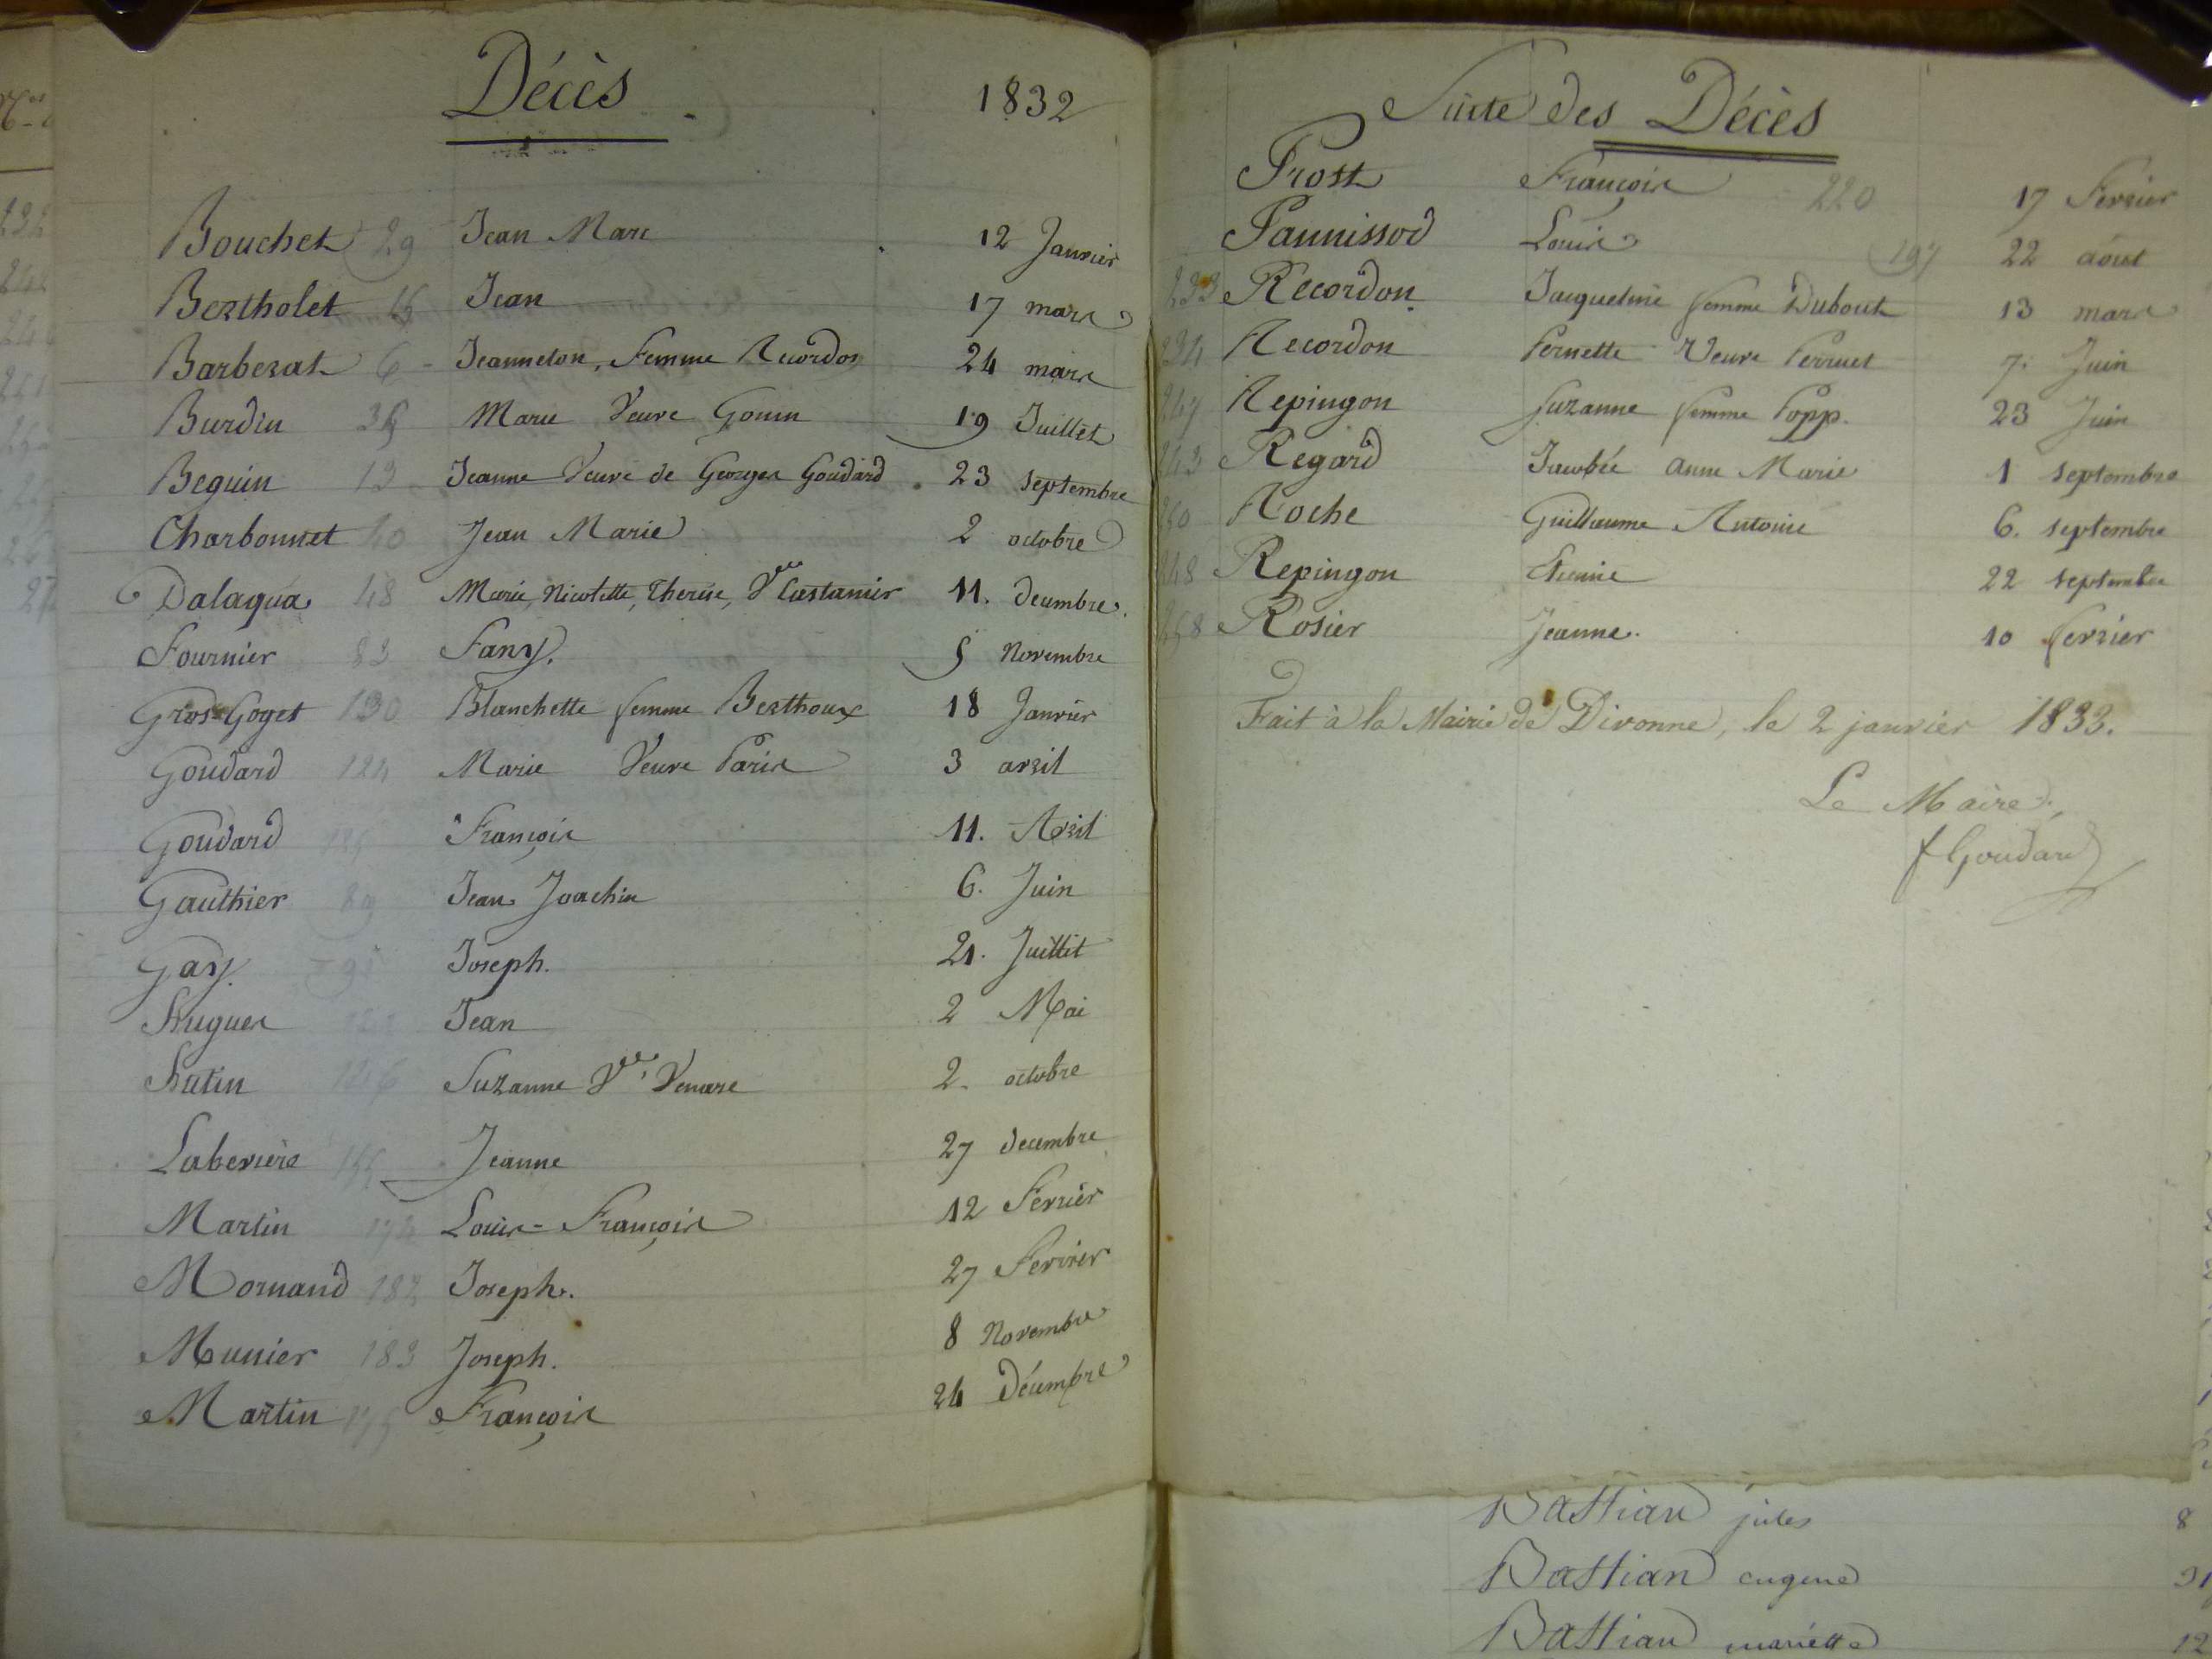 Décès 1832
Bouchet 29 Jean Marc 12 Janvier
Bertholet 16 Jean 17 mars
Barbezat 6 Jeanneton, Femme Recordon 24 mars
Burdin 36 Marie Veuve Gonin 19 Juillet
Beguin 13 Jeanne Veuve de Georges Goudard 23 septembre
Charbonnet 40 Jean Marie 2 octobre
Dalaqua 48 Marie, Nicolette, Therese, Vve Castanier 11. decembre
Fournier 83 Fany. 5 Novembre
Gros Goget 130 Blanchette femme Berthoux 18 Janvier
Goudard 124 Marie Veuve Paris 3 avril
Goudard François 11. Avril
Gauthier 89 Jean Joachin 6. Juin
Gay. 95 Joseph. 21. Juillet
Hugues Jean 2 Mai
Hutin 146 Suzanne Vve 2. octobre
Laberiere 155 Jeanne 27 decembre
Martin 172 Louis-François 12 Fevrier
Mornand 182 Joseph. 27 Fevrier
Munier 183 Joseph. 8 Novembre
Martin 175 François 24 Décembre
Suite des Décès
Prost François 220 17 Fevrier
Pannissod Louis 197 22 aout
233 Recordon Jacqueline femme Dubout 13 mars
234 Recordon Pernette Veuve Perruet 7. Juin
247 Repingon Suzanne femme Popp. 23 Juin
243 Regard Jacobée Anne Marie 1 septembre
250 Roche Guillaume Antoine 6. septembre
248 Repingon Etienne 22 septembre
258 Rosier Jeanne. 10 fevrier
Fait à la Mairie de Divonne, le 2 janvier 1833.
Le Maire,
f Goudard
Bastian jules 8
Bastian eugene 31
Bastian mariette 12